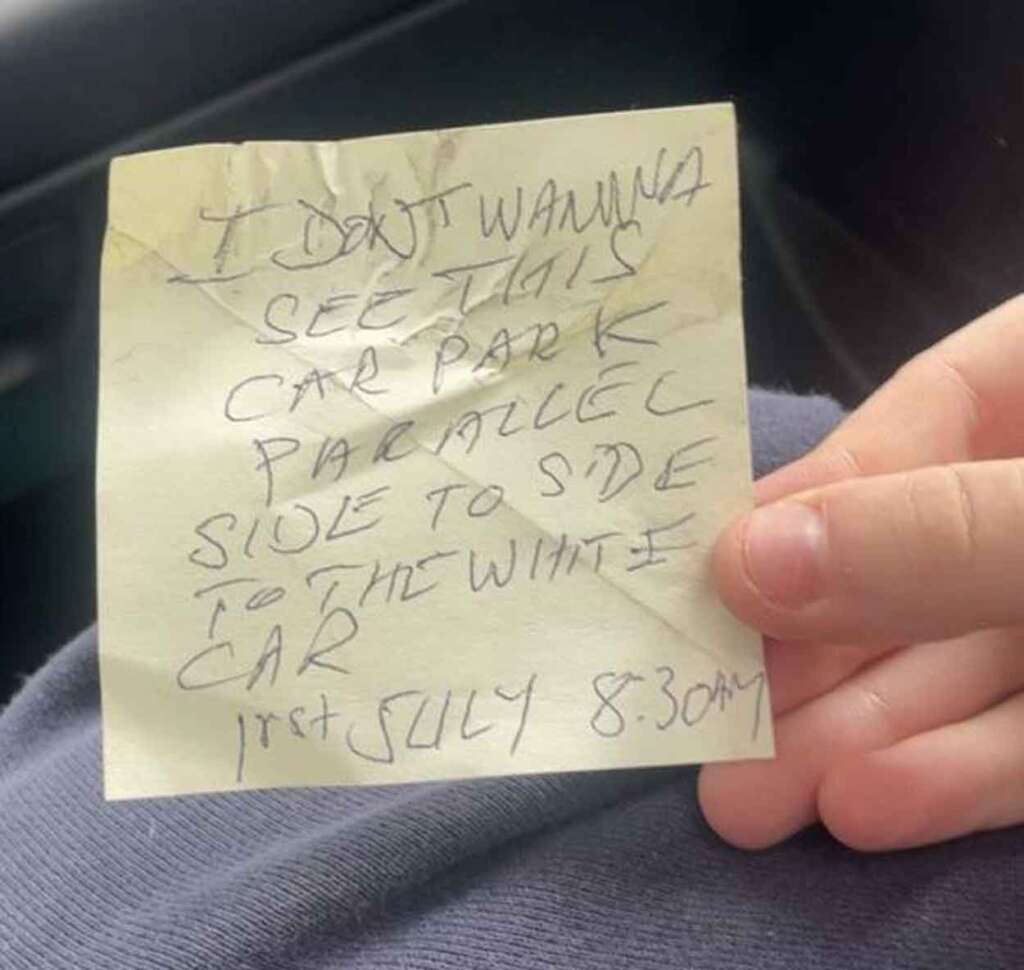 I DON'T WANNNA
SEE THIS
CAR PARK
PARALLEL
SIDE TO SIDE
TO THE WHITE
CAR
1rst JULY 8.30AM